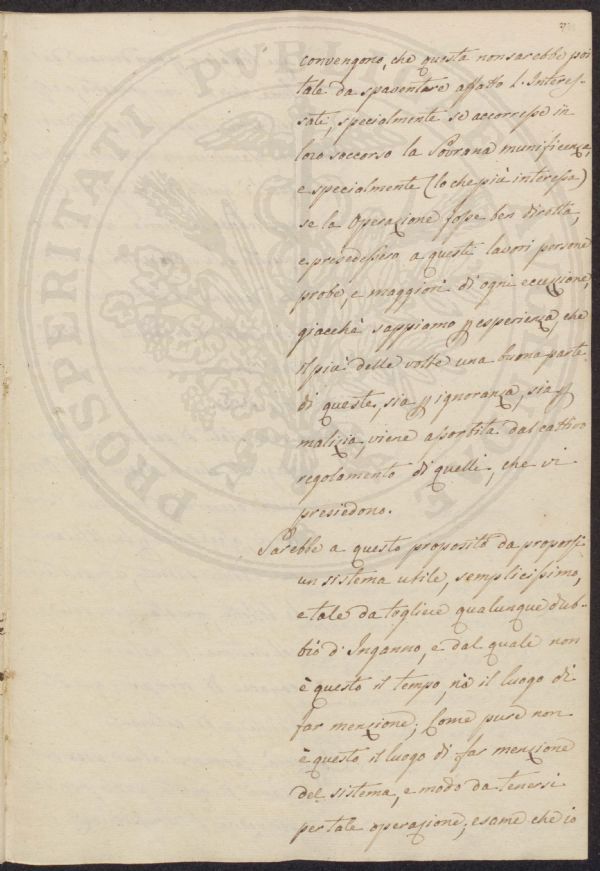 convengono, che questa non sarebbe poi
tale da spaventare affatto l'Interes-
sati, specialmente se accorresse in
loro soccorso la Sovrana munificenza,
e specialmente (lo che più interessa)
se la Operazione fosse ben diretta,
e presedessero a questi lavori persone
probe, e maggiori di ogni eccezione,
giacchè sappiamo p esperienza, che
il più delle volte una buona parte
di queste, sia p ignoranza, sia p
malizia, viene assorbita dal cattivo
regolamento di quelli, che vi
presiedono.
Sarebbe a questo proposito da proporsi
un sistema utile, semplicissimo,
e tale da togliere qualunque dub-
bio d'Inganno, e dal quale non
è questo il tempo, nò il luogo di
far menzione; Come pure non
è questo il luogo di far menzione
del sistema, e modo da tenersi
per tale operazione; esame che io
PROSPERITATI PUBLICAE